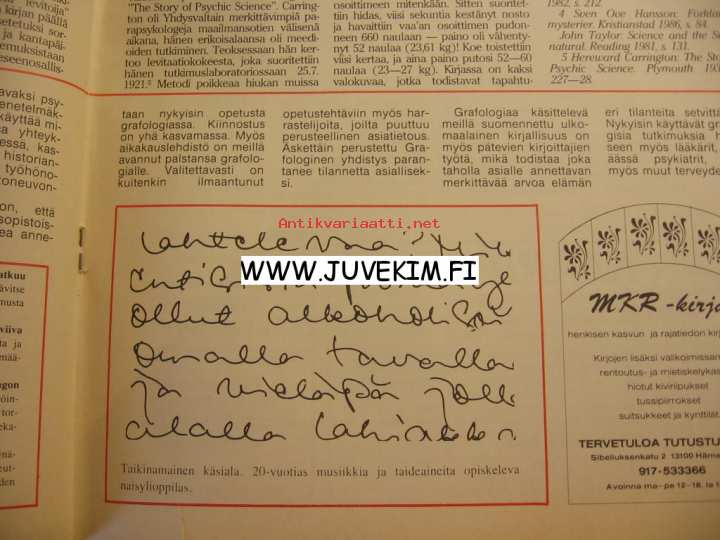 levitoija"
kirjan päällä
setetuksi sor-
ja kantapäi-
emuksistaan
eseenosallis-
"The Story of Psychic Science". Carring-
ton oli Yhdysvaltain merkittävimpiä pa-
rapsykologeja maailmansotien välisenä
aikana, hänen erikoisalaansa oli meedi-
oiden tutkiminen. Teoksessaan hän ker-
too levitaatiokokeesta, joka suoritettiin
hänen tutkimuslaboratoriossaan 25.7.
1921.² Metodi poikkeaa hiukan muissa
osoittimeen mitenkään. Sitten suoritet-
tiin hidas, viisi sekuntia kestänyt nosto
ja havaittiin vaa'an osoittimen pudon-
neen 660 naulaan — paino oli vähenty-
nyt 52 naulaa (23,61 kg)! Koe toistettiin
viisi kertaa, ja aina paino putosi 52—60
naulaa (23—27 kg). Kirjassa on kaksi
valokuvaa, jotka todistavat tapahtu-
1982, s. 212.
4 Sven Ove Hansson: Förkla
mysterier. Kristianstad 1986, s. 84.
John Taylor: Science and the S
natural. Reading 1981, s. 131.
5 Hereward Carrington: The Sto
Psychic Science. Plymouth 193
227—28.
avaksi psy-
enetelmäk-
käyttää mi-
a yhteyk-
essä, kas-
historian-
työhöno-
toneuvon-
on, että
sopistois-
ea anne-
taan nykyisin opetusta
grafologiassa. Kiinnostus
on yhä kasvamassa. Myös
aikakauslehdistö on meillä
avannut palstansa grafolo-
gialle. Valitettavasti on
kuitenkin ilmaantunut
opetustehtäviin myös har-
rastelijoita, joilta puuttuu
perusteellinen asiatietous.
Äskettäin perustettu Gra-
fologinen yhdistys paran-
tanee tilannetta asiallisek-
si.
Grafologiaa käsittelevä
meillä suomennettu ulko-
maalainen kirjallisuus on
myös pätevien kirjoittajien
työtä, mikä todistaa joka
taholla asialle annettavan
merkittävää arvoa elämän
eri tilanteita selvittä
Nykyisin käyttävät gr
gisia tutkimuksia
seen myös lääkärit,
äässä psykiatrit,
myös muut terveyde
Antikvariaatti.net
WWW.JUVEKIM.FI
ollut alkoholi
omalla tavalla
ja vieläpä
alalla
Taikinamainen käsiala. 20-vuotias musiikkia ja taideaineita opiskeleva
naisylioppilas.
MKR -kirja
henkisen kasvun ja rajatiedon kirj
Kirjojen lisäksi valikoimissan
rentoutus- ja mietiskelykas
hiotut kiviriipukset
tussipiirrokset
suitsukkeet ja kynttilät
TERVETULOA TUTUSTU
Sibeliuksenkatu 2 13100 Häme
917-533366
Avoinna ma-pe 12-18, la 1
atkuu
ävitse
musta
viiva
ta ja
mää-
ngon
öin-
tor-
eka-
nä-
eut-
den